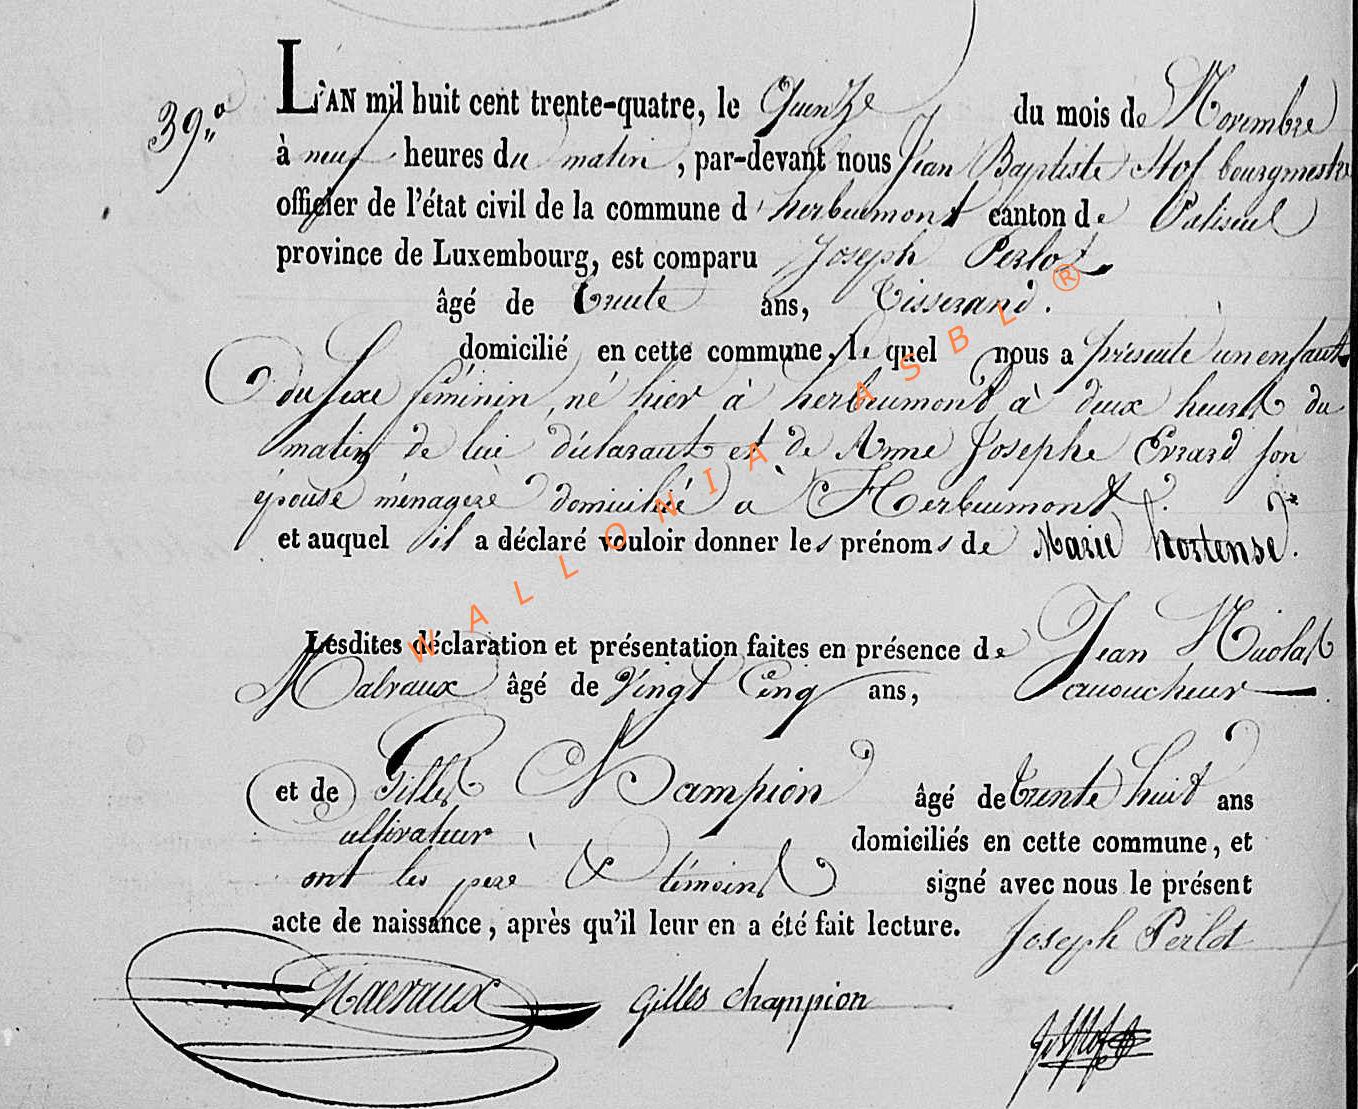 39.o
L'AN mil huit cent trente-quatre, le Quinze du mois de Novembre
à neuf heures du matin, par-devant nous Jean Baptiste Hof bourgmestre
officier de l'état civil de la commune d'herbeumont canton de Paliseul
province de Luxembourg, est comparu Joseph Perlot
âgé de trente ans, Tisserand.
domicilié en cette commune, le quel nous a présenté un enfant
du sexe féminin, né hier à herbeumont à deux heures du
matin de lui déclarant et de Anne Josephe Evrard son
épouse ménagere domiciliée à Herbeumont
et auquel il a déclaré vouloir donner les prénoms de Marie hortense.
Lesdites déclaration et présentation faites en présence de Jean Nicolas
Malvaux âgé de vingt Cinq ans,
et de Gilles Champion âgé de trente huit ans
cultivateur domiciliés en cette commune, et
ont les pere & témoins signé avec nous le présent
acte de naissance, après qu'il leur en a été fait lecture.
Joseph Perlot
Gilles champion
WALLONIA ASBL ®